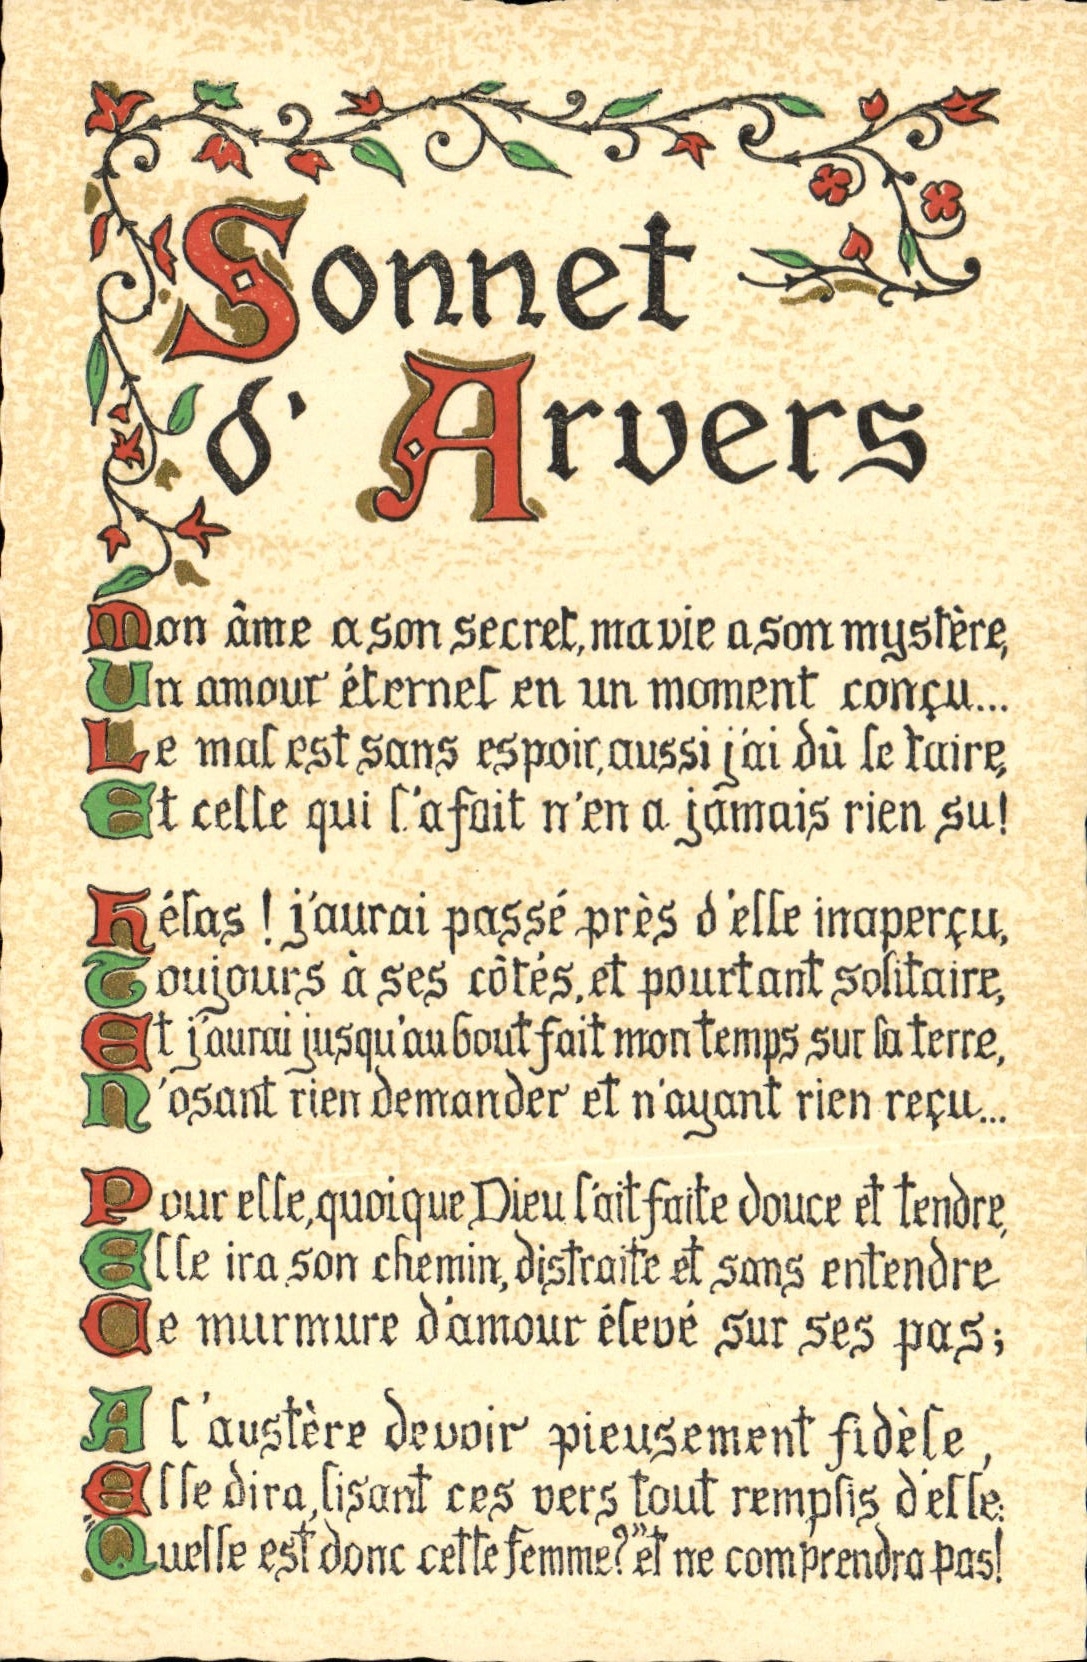 Sonnet
d'Arvers
Mon âme a son secret, ma vie a son mystère,
Un amour éternel en un moment conçu...
Le mal est sans espoir, aussi j'ai dû le taire,
Et celle qui l'a fait n'en a jamais rien su!
Hélas! j'aurai passé près d'elle inaperçu,
Toujours à ses côtés, et pourtant solitaire,
Et j'aurai jusqu'au bout fait mon temps sur la terre,
N'osant rien demander et n'ayant rien reçu...
Pour elle, quoique Dieu l'ait faite douce et tendre,
Elle ira son chemin, distraite et sans entendre
Ce murmure d'amour élevé sur ses pas;
A l'austère devoir pieusement fidèle,
Elle dira, lisant ces vers tout remplis d'elle:
"Quelle est donc cette femme?" et ne comprendra pas!